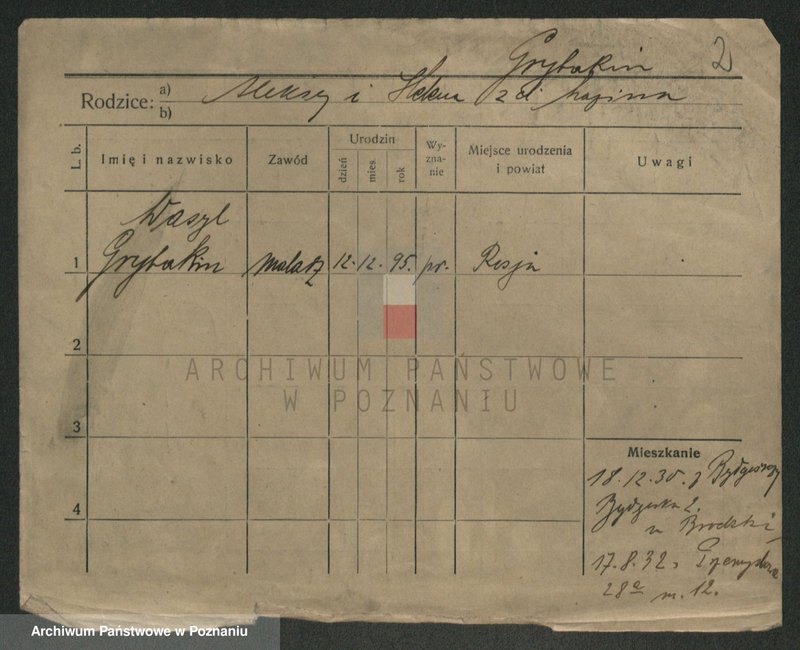 Grybakin 2
Rodzice: a) Aleksy i
b)
L. b. Imię i nazwisko Zawód Urodzin Wy-zna-nie Miejsce urodzenia i powiat Uwagi
dzień mies. rok
Wasyl
1 Grybakin malarz 12. 12. 95. pr. Rosja
2
ARCHIWUM PAŃSTWOWE
W POZNANIU
3
Mieszkanie
18.12.30. z Bydgoszczy
4 2.
u Brodzki
17.8.32. Przemysłowa
28a m. 12.
Archiwum Państwowe w Poznaniu